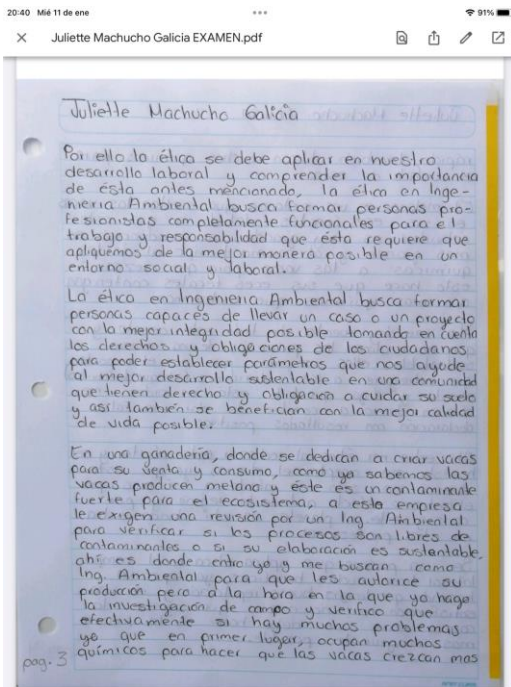 20:40 Mié 11 de ene
91%
Juliette Machucho Galicia EXAMEN.pdf
Juliette Machucho Galicia
Por ello la ética se debe aplicar en nuestro
desarrollo laboral y comprender la importancia
de ésta antes mencionado, la ética en Inge-
niería Ambiental busca formar personas pro-
fesionistas completamente funcionales para el
trabajo y responsabilidad que ésta requiere que
apliquemos de la mejor manera posible en un
entorno social y laboral.
La ética en Ingenieria Ambiental busca formar
personas capaces de llevar un caso o un proyecto
con la mejor integridad posible tomando en cuenta
los derechos y obligaciones de los ciudadanos
para poder establecer parámetros que nos ayude
al mejor desarrollo sustentable en una comunidad
que tienen derecho y obligación a cuidar su suelo
y asi también se benefician con la mejor calidad
de vida posible.
En una ganadería, donde se dedican a criar vacas
para su venta y consumo, como ya sabemos las
vacas producen metano y éste es un contaminante
fuerte para el ecosistema, a esta empresa
le exigen una revisión por un Ing. Ambiental
para verificar si los procesos son libres de
contaminantes o si su elaboración es sustentable,
ahí es donde entro yo y me buscan como
Ing. Ambiental para que les autorice su
producción pero a la hora en la que yo hago
la investigación de campo y verifico que
efectivamente si hay muchos problemas
ya que en primer lugar, ocupan muchos
químicos para hacer que las vacas crezcan mas
pag. 3